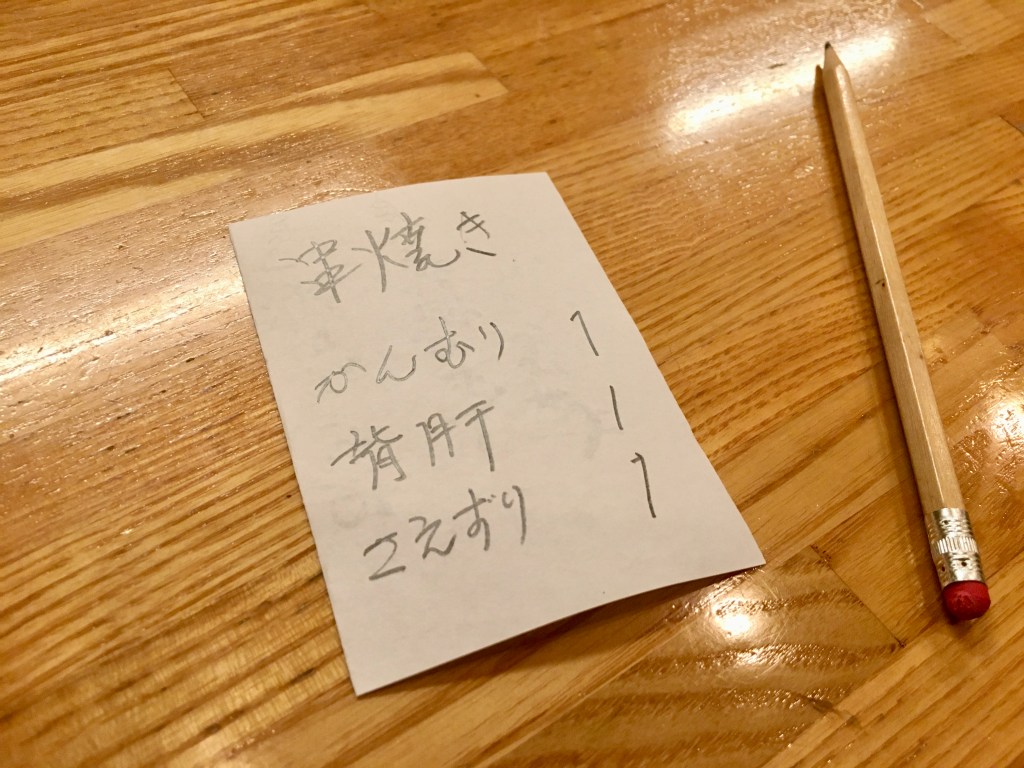 串焼き
かんむり 1
背肝 1
さえずり 1